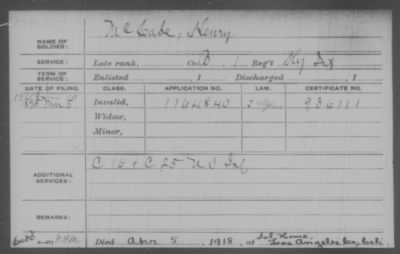 NAME OF SOLDIER: McCabe, Henry.
SERVICE: Late rank, Co. B, 1 Reg't Ky Inf
TERM OF SERVICE: Enlisted , 1 Discharged , 1
DATE OF FILING. CLASS. APPLICATION NO. LAW. CERTIFICATE NO.
Invalid, 1164840 936111
Widow,
Minor,
ADDITIONAL SERVICES: C 16 & C 25 Inf
REMARKS:
Died Apr. 5, 1918, at Sol. Home. Los Angeles Co., Cal.